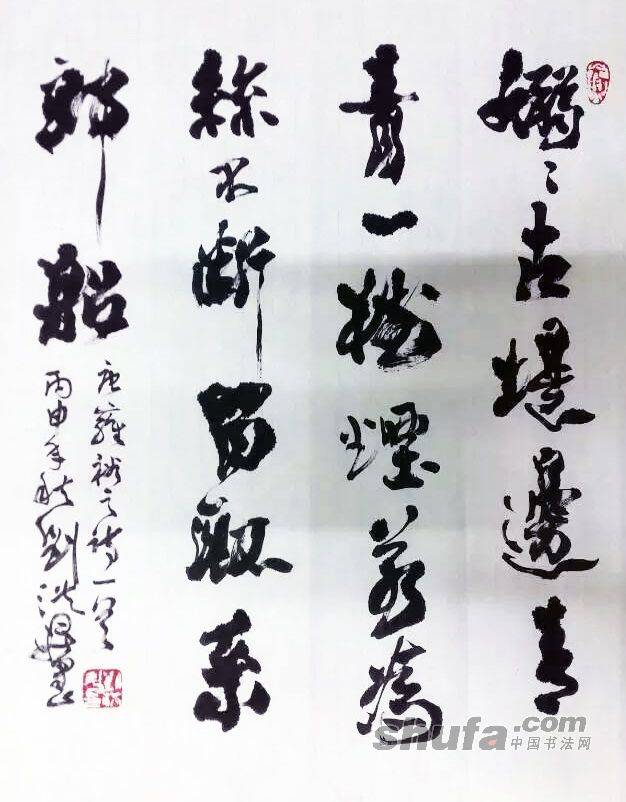 嫋〻古堤邊青
青一樹煙若為
絲不斷留取系
郎船
唐雍裕之詩一首
丙申年秋劉洪
shufa.com
中国书法网